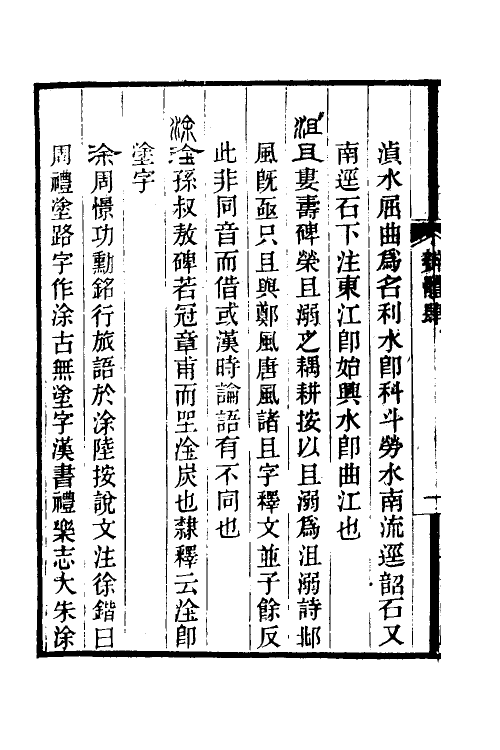 湞水屈曲爲名利水卽科斗勞水南流逕韶石又
南逕石下注東江卽始興水卽曲江也
沮且婁壽碑榮且溺之耦耕按以且溺爲沮溺詩邶
風旣亟只且與鄭風唐風諸且字釋文並子餘反
此非同音而借或漢時論語有不同也
涂淦孫叔敖碑若冠章甫而坐淦炭也隸釋云淦卽
塗字
涂周憬功勳銘行旅語於涂陸按說文注徐鍇曰
周禮塗路字作涂古無塗字漢書禮樂志大朱涂